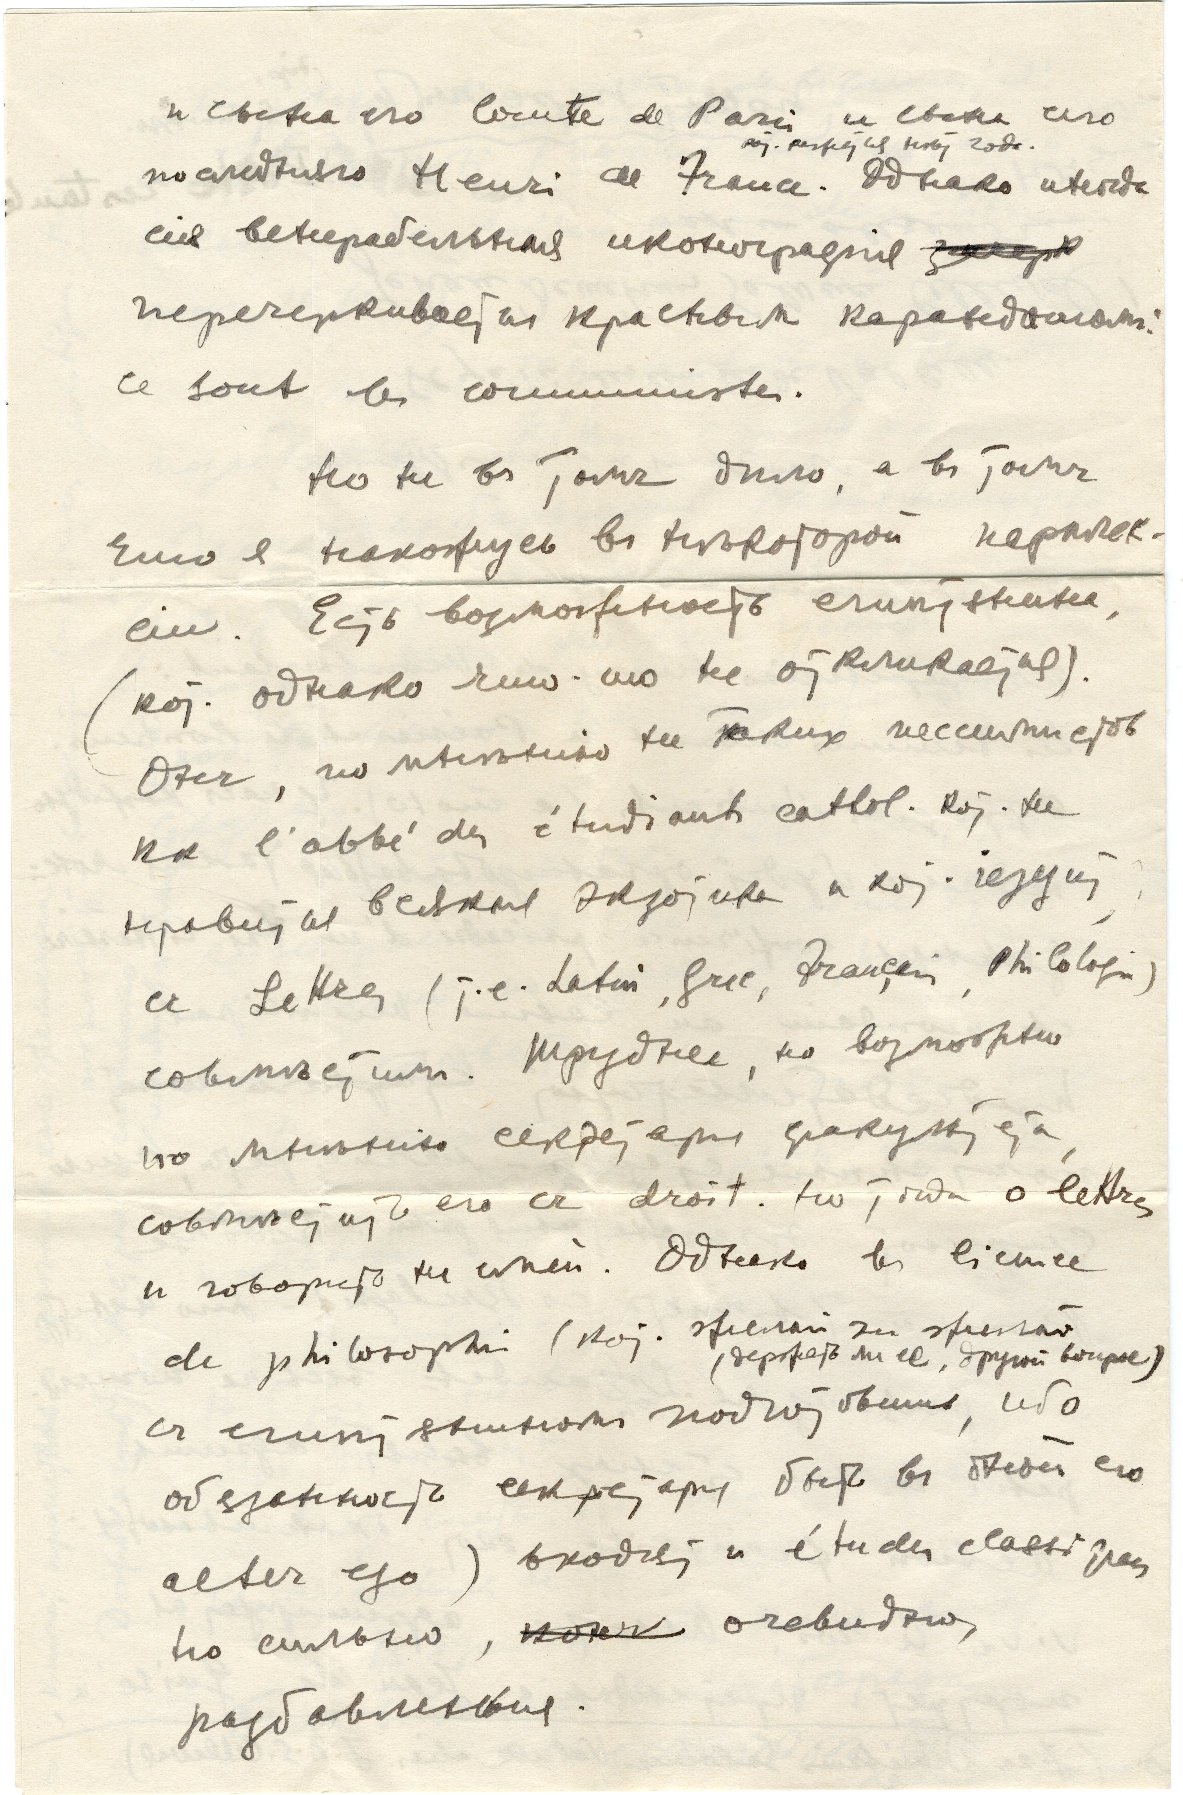 и сына его Comte de Paris и сына сего
кот.                    года.
последняго Henri de France. Однако иногда
сия венерабельная иконография
перечеркивается красным карандашом:
ce sont les communistes.
Но не в том дело, а в том
что я нахожусь в некоторой перплек-
сии. Есть возможность
(кот. однако что-то не откликается).
Он, по мнению не таких пессимистов
как l'abbé des étudiants cathol. кот. не
нравится всякая экзотика и кот. иезуит,
с Lettres (т.е. Latin, Grec, Français, Philologie)
совместим. Труднее, но возможно
по мнению секретаря факультета,
совместить его с droit. Но тогда о lettres
и говорить не имей. Однако в licence
de philosophie (кот.
держать ли ее, другой вопрос)
с ибо
обязанность секретаря быть в оной его
alter ego) входят и études classiques
но сильно, очевидно,
разбавленныя.